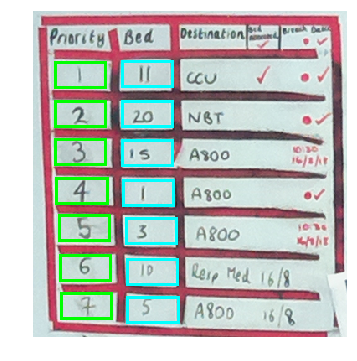 Priority Bed Destination Bed
1 11 CCU ✓ • ✓
2 20 NBT • ✓
3 15 A800 10:30 16/8/18
4 1 A800 • ✓
5 3 A800 10:30 16/8/18
6 10 Resp Med 16/8
7 5 A800 16/8